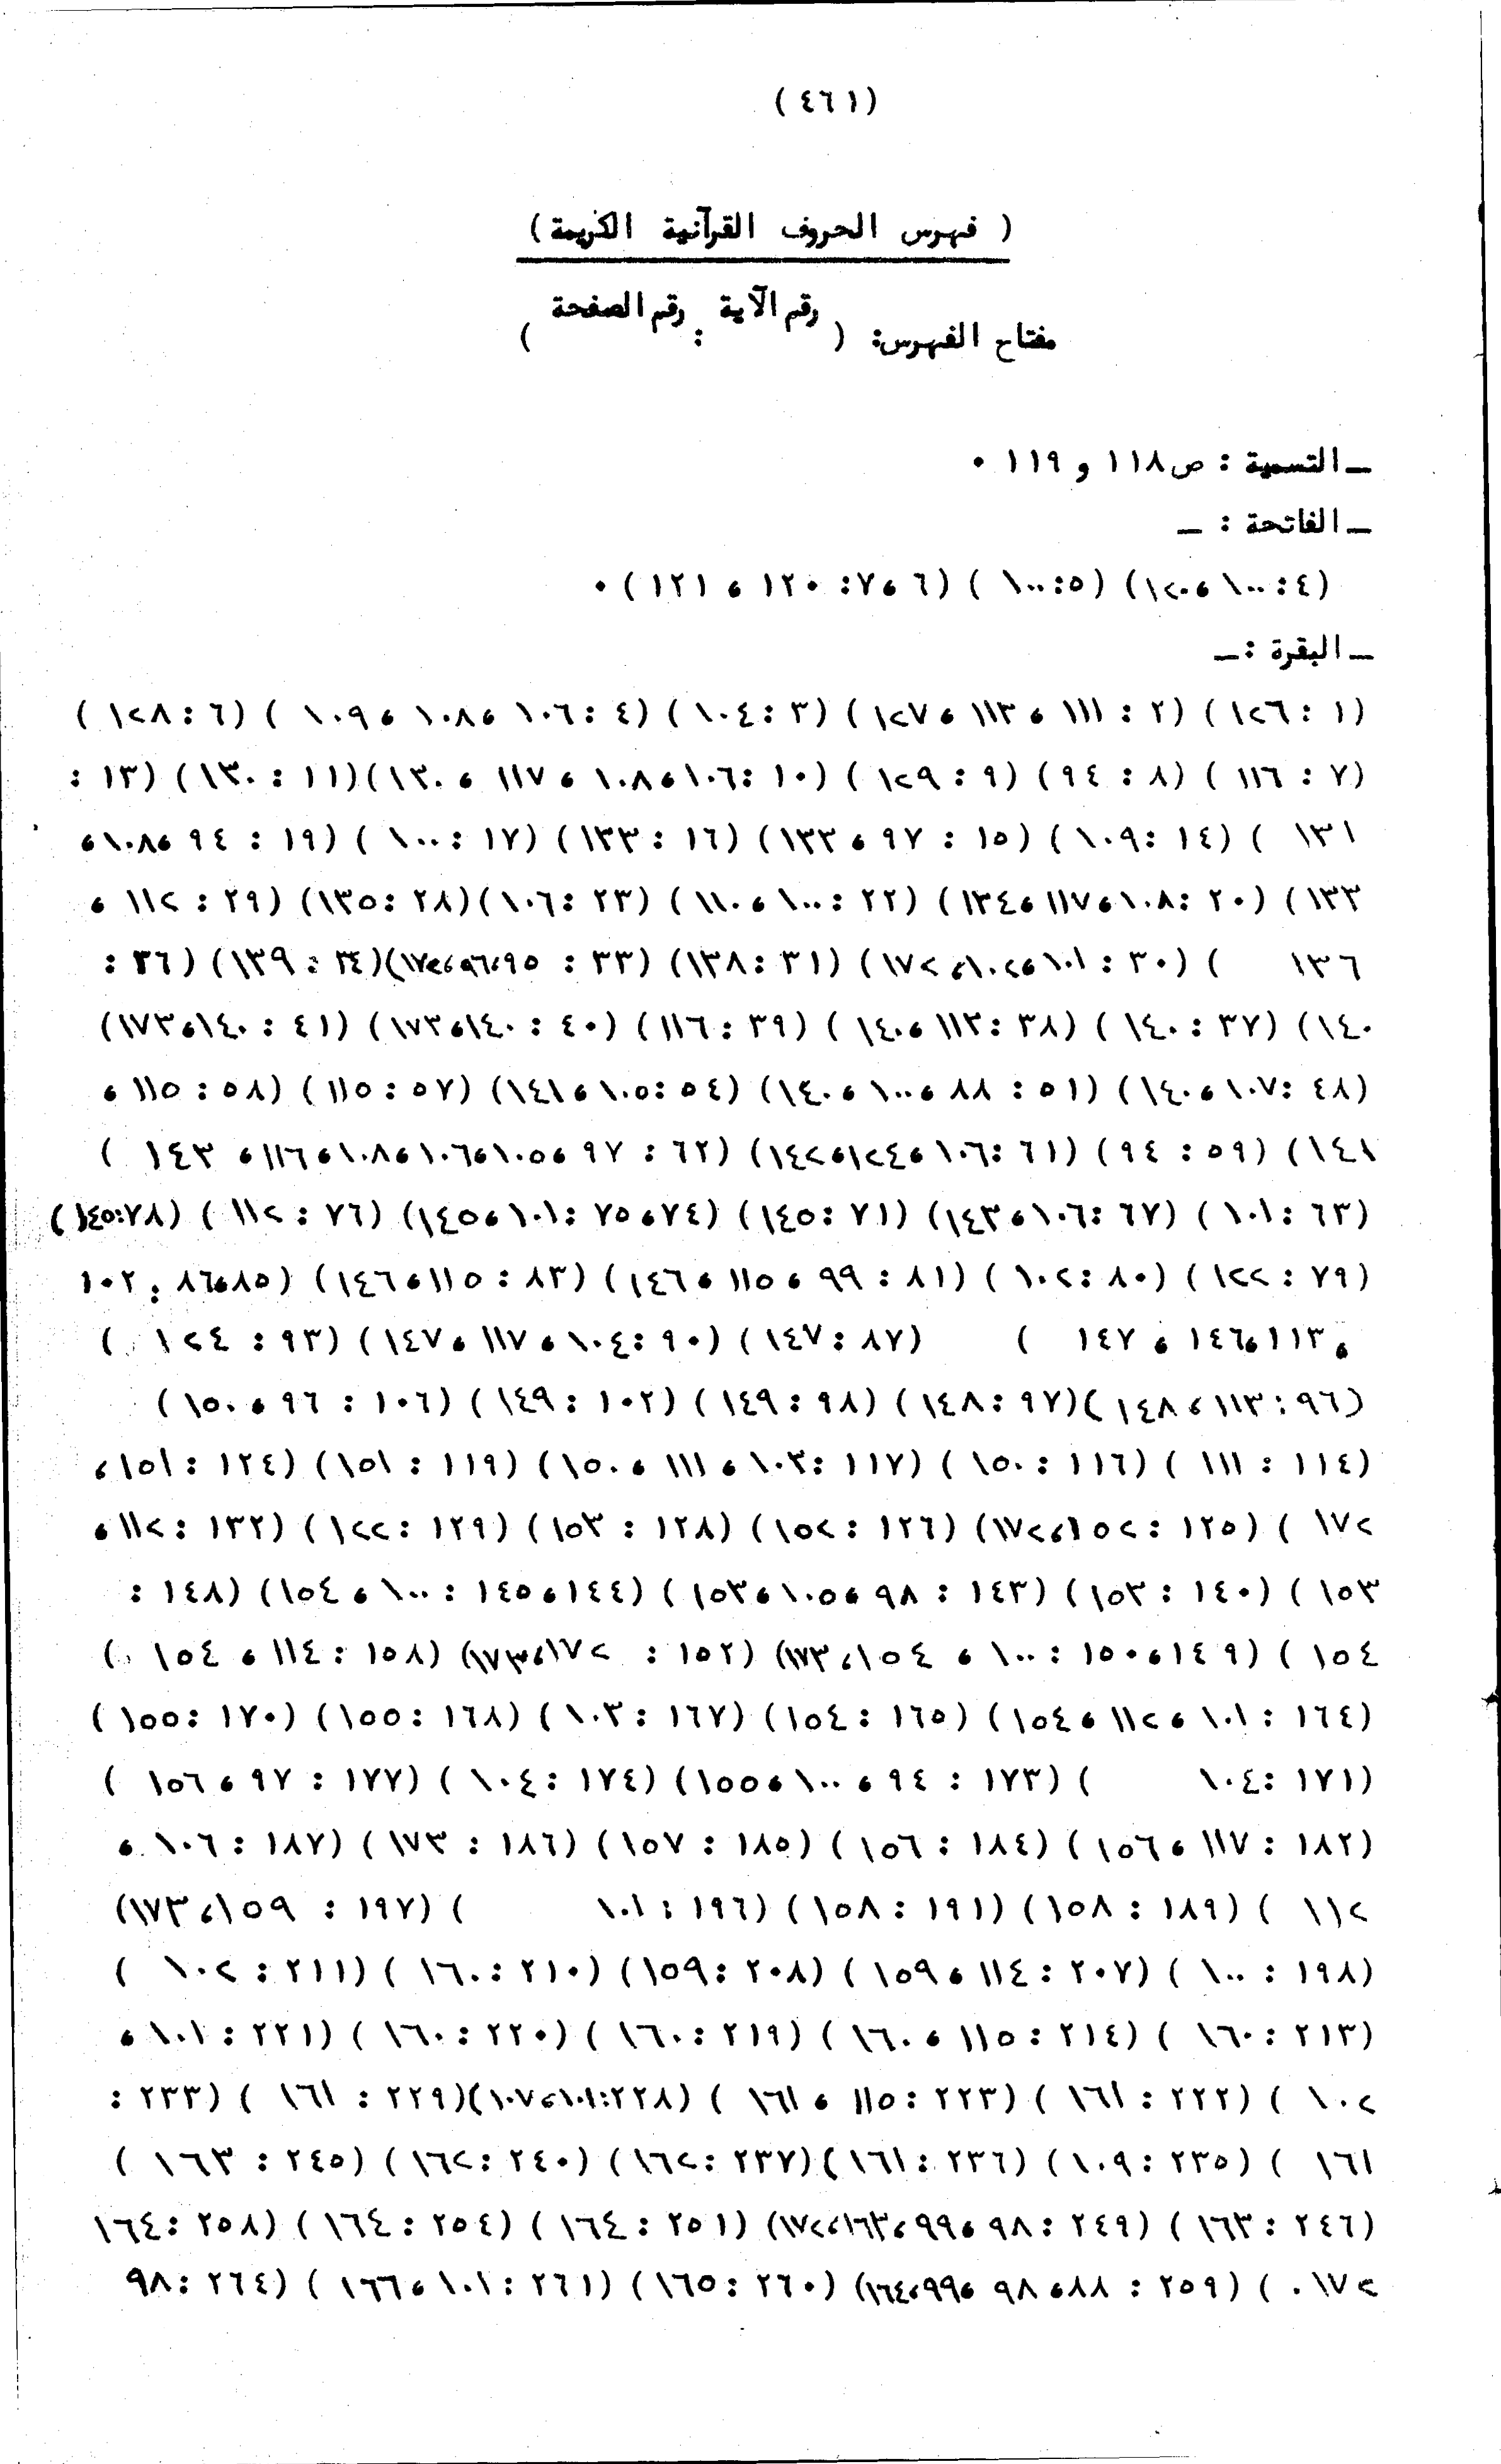 (٤٦١)
( فهرس الحروف القرآنية الكريمة)
مفتاح الفهرس: ( رقم الآية : رقم الصفحة )
ـ التسمية : ص١١٨ و ١١٩ ٠
ـ الفاتحة : ـ
(٤ : ١٠٠ ، ١٢٠) (٥ : ١٠٠ ) (٦ ، ٧ : ١٢٠ ، ١٢١) ٠
ـ البقرة : ـ
(١ : ١٢٦ ) (٢ : ١١١ ، ١١٣ ، ١٢٧) (٣ : ١٠٤) (٤ : ١٠٦ ، ١٠٨ ، ١٠٩ ) (٦ : ١٢٨ )
(٧ : ١١٦ ) (٨ : ٩٤) (٩ : ١٢٩ ) (١٠ : ١٠٦ ، ١٠٨ ، ١١٧ ، ١٣٠)(١١ : ١٣٠) (١٣ :
١٣١ ) (١٤ : ١٠٩ ) (١٥ : ٩٧ ، ١٣٣) (١٦ : ١٣٣) (١٧ : ١٠٠ ) (١٩ : ٩٤ ، ١٠٨ ،
١٣٣) (٢٠ : ١٠٨ ، ١١٧ ، ١٣٤) (٢٢ : ١٠٠ ، ١١٠ ) (٢٣ : ١٠٦ )(٢٨ : ١٣٥) (٢٩ : ١١٢ ،
١٣٦ ) (٣٠ : ١٠١ ، ١٠٢ ، ١٧٢) (٣١ : ١٣٨) (٣٣ : ٩٥ ، ٩٦ ، ١٧٢)(٣٤ : ١٣٩) (٣٦ :
١٤٠) (٣٧ : ١٤٠ ) (٣٨ : ١١٣ ، ١٤٠ ) (٣٩ : ١١٦) (٤٠ : ١٤٠ ، ١٧٣) (٤١ : ١٤٠ ، ١٧٣)
(٤٨ : ١٠٧ ، ١٤٠) (٥١ : ٨٨ ، ١٠٠ ، ١٤٠) (٥٤ : ١٠٥ ، ١٤١) (٥٧ : ١١٥ ) (٥٨ : ١١٥ ،
١٤١) (٥٩ : ٩٤ ) (٦١ : ١٠٦ ، ١٢٤ ، ١٤٢) (٦٢ : ٩٧ ، ١٠٥ ، ١٠٦ ، ١٠٨ ، ١١٦ ، ١٤٣ )
(٦٣ : ١٠١ ) (٦٧ : ١٠٦ ، ١٤٣) (٧١ : ١٤٥) (٧٤ ، ٧٥ : ١٠١ ، ١٤٥) (٧٦ : ١١٢ ) (٧٨ : ١٤٥)
(٧٩ : ١٢٢ ) (٨٠ : ١٠٢ ) (٨١ : ٩٩ ، ١١٥ ، ١٤٦) (٨٣ : ١١٥ ، ١٤٦) (٨٥ ، ٨٦ : ١٠٢
، ١١٣ ، ١٤٦ ، ١٤٧ ) (٨٧ : ١٤٧) (٩٠ : ١٠٤ ، ١١٧ ، ١٤٧) (٩٣ : ١٢٤ )
(٩٦ : ١١٣ ، ١٤٨ )(٩٧ : ١٤٨) (٩٨ : ١٤٩) (١٠٢ : ١٤٩) (١٠٦ : ٩٦ ، ١٥٠)
(١١٤ : ١١١ ) (١١٦ : ١٥٠ ) (١١٧ : ١٠٣ ، ١١١ ، ١٥٠) (١١٩ : ١٥١) (١٢٤ : ١٥١ ،
١٧٢ ) (١٢٥ : ١٥٢ ، ١٧٢) (١٢٦ : ١٥٢) (١٢٨ : ١٥٣) (١٢٩ : ١٢٢) (١٣٢ : ١١٢ ،
١٥٣ ) (١٤٠ : ١٥٣) (١٤٣ : ٩٨ ، ١٠٥ ، ١٥٣ ) (١٤٤ ، ١٤٥ : ١٠٠ ، ١٥٤) (١٤٨ :
١٥٤ ) (١٤٩ ، ١٥٠ : ١٠٠ ، ١٥٤ ، ١٧٣) (١٥٢ : ١٧٢ ، ١٧٣) (١٥٨ : ١١٤ ، ١٥٤ )
(١٦٤ : ١٠١ ، ١١٢ ، ١٥٤) (١٦٥ : ١٥٤) (١٦٧ : ١٠٣ ) (١٦٨ : ١٥٥) (١٧٠ : ١٥٥ )
(١٧١ : ١٠٤ ) (١٧٣ : ٩٤ ، ١٠٠ ، ١٥٥) (١٧٤ : ١٠٤ ) (١٧٧ : ٩٧ ، ١٥٦ )
(١٨٢ : ١١٧ ، ١٥٦ ) (١٨٤ : ١٥٦ ) (١٨٥ : ١٥٧) (١٨٦ : ١٧٣ ) (١٨٧ : ١٠٦ ،
١١٢ ) (١٨٩ : ١٥٨) (١٩١ : ١٥٨) (١٩٦ : ١٠١ ) (١٩٧ : ١٥٩ ، ١٧٣)
(١٩٨ : ١٠٠ ) (٢٠٧ : ١١٤ ، ١٥٩ ) (٢٠٨ : ١٥٩) (٢١٠ : ١٦٠ ) (٢١١ : ١٠٢ )
(٢١٣ : ١٦٠ ) (٢١٤ : ١١٥ ، ١٦٠ ) (٢١٩ : ١٦٠ ) (٢٢٠ : ١٦٠ ) (٢٢١ : ١٠١ ،
١٠٢ ) (٢٢٢ : ١٦١ ) (٢٢٣ : ١١٥ ، ١٦١ ) (٢٢٨ : ١٠١ ، ١٠٧)(٢٢٩ : ١٦١ ) (٢٣٣ :
١٦١ ) (٢٣٥ : ١٠٩ ) (٢٣٦ : ١٦١ )(٢٣٧ : ١٦٢ ) (٢٤٠ : ١٦٢ ) (٢٤٥ : ١٦٣ )
(٢٤٦ : ١٦٣ ) (٢٤٩ : ٩٨ ، ٩٩ ، ١٦٣ ، ١٧٢) (٢٥١ : ١٦٤ ) (٢٥٤ : ١٦٤ ) (٢٥٨ : ١٦٤
١٧٢ ٠ ) (٢٥٩ : ٨٨ ، ٩٨ ، ٩٩ ، ١٦٤) (٢٦٠ : ١٦٥) (٢٦١ : ١٠١ ، ١٦٦ ) (٢٦٤ : ٩٨